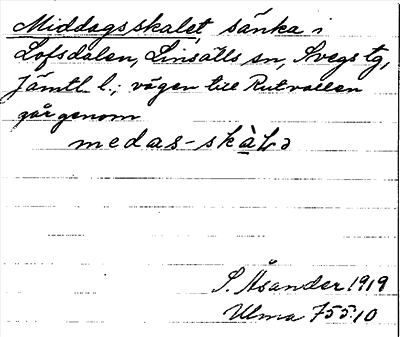 Middagsskalet, sänka i
Lofsdalen, Linsälls sn, Svegs tg,
Jämtl l.; vägen till Rutvallen
går genom
medas-skàLə
S. Åsander 1919
Ulma 755:10